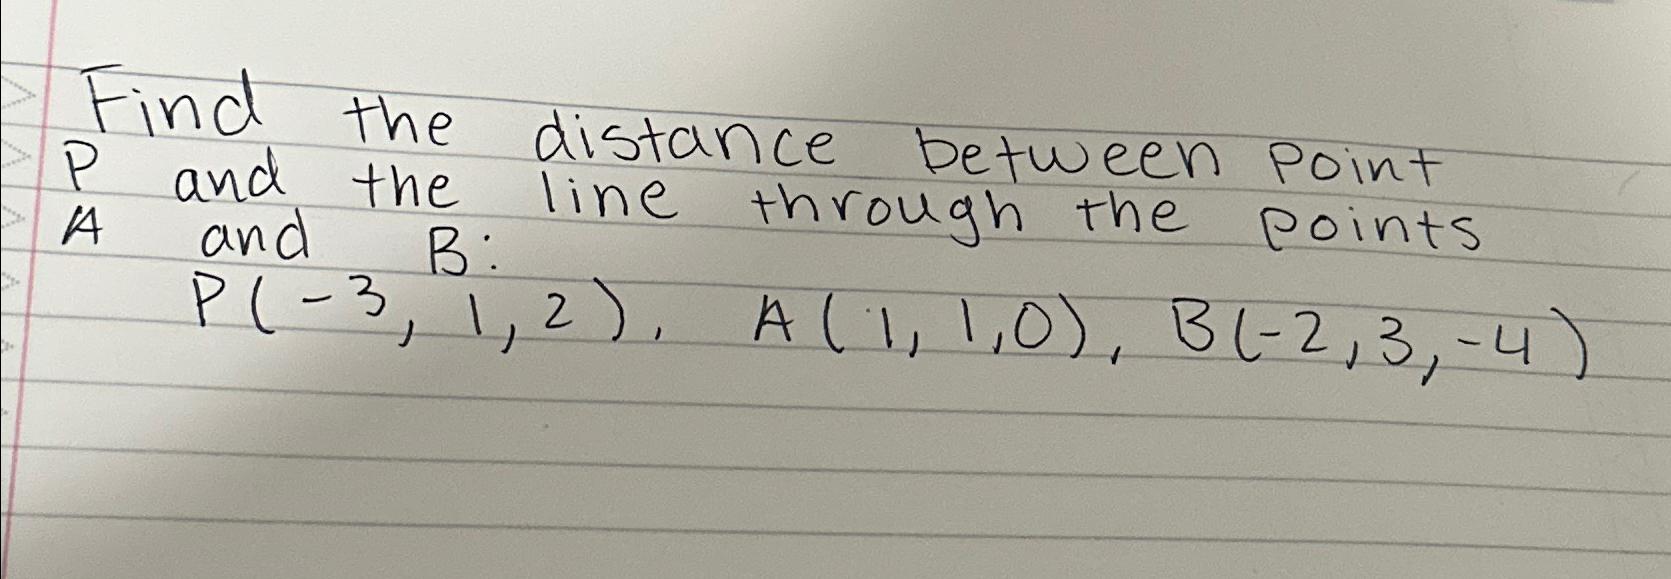 Find the distance between point
P and the line through the points
A and B:
P(-3, 1, 2), A(1, 1, 0), B(-2, 3, -4)